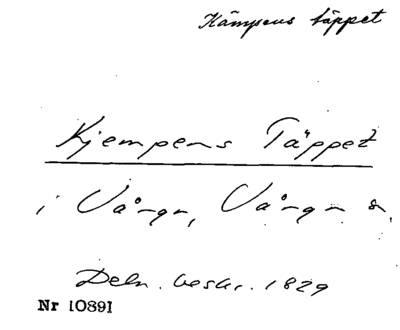 Kämpens täppet
Kjempens Täppet
i Vånga, Vånga s.
Deln. beskr. 1829
Nr 10891